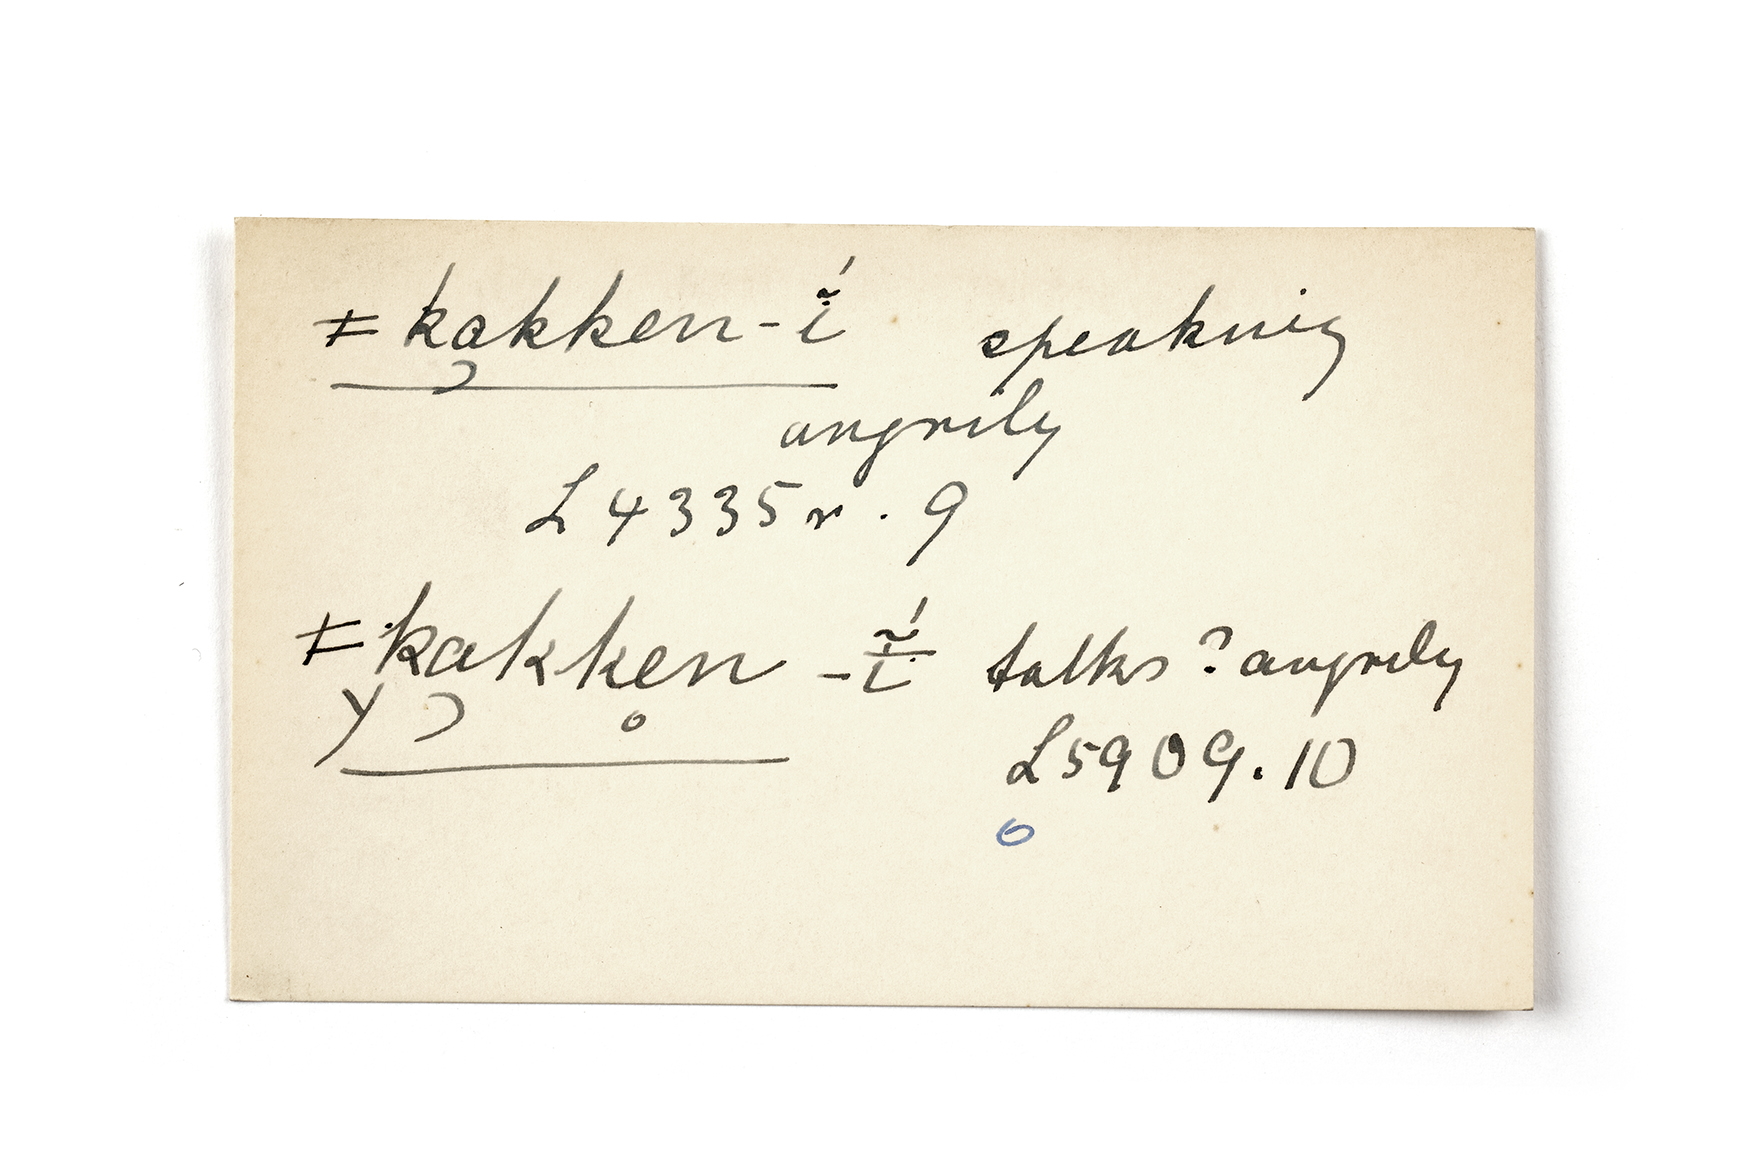 ǂkakken-ĩ́ speaking
angrily
L4335r.9
ǂkakken -ĩ́ talks ? angrily
L5909.10